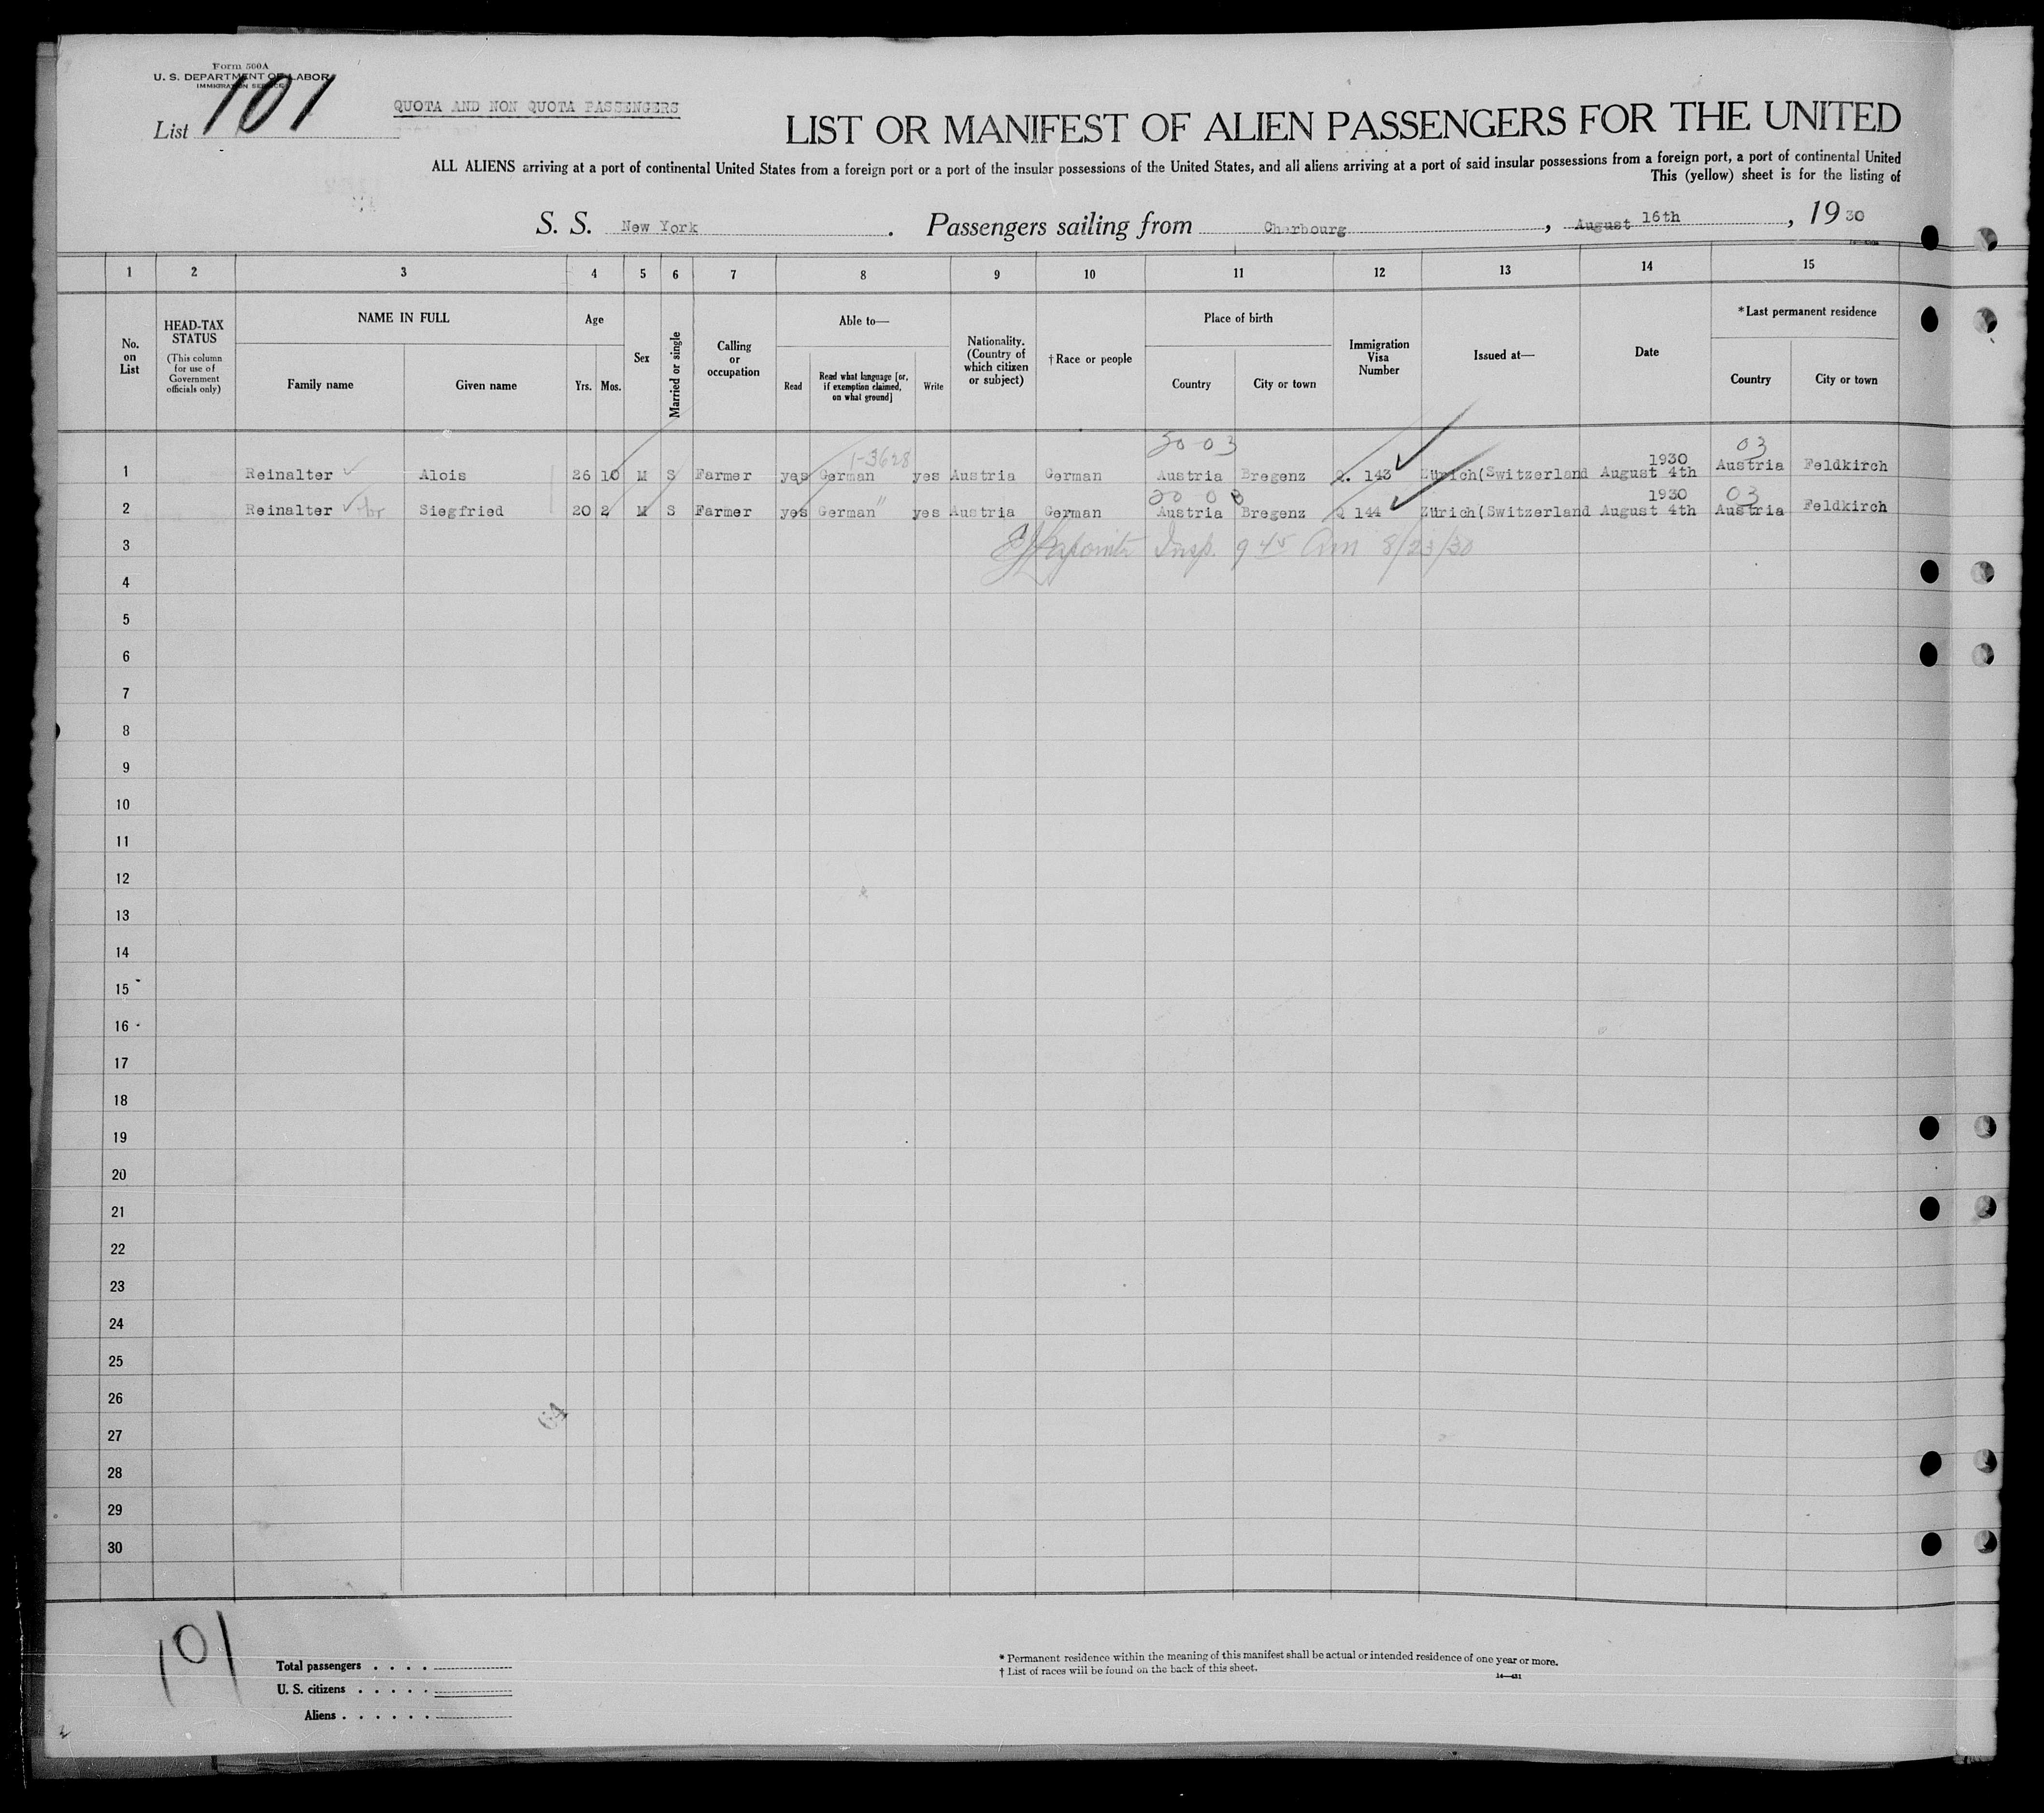 Form 500A
U. S. DEPARTMENT OF LABOR
IMMIGRATION SERVICE
List 101
QUOTA AND NON QUOTA PASSENGERS
LIST OR MANIFEST OF ALIEN PASSENGERS FOR THE UNITED
ALL ALIENS arriving at a port of continental United States from a foreign port or a port of the insular possessions of the United States, and all aliens arriving at a port of said insular possessions from a foreign port, a port of continental United
This (yellow) sheet is for the listing of
S. S. New York . Passengers sailing from Cherbourg , August 16th , 1930
1 2 3 4 5 6 7 8 9 10 11 12 13 14 15
No. on List
HEAD-TAX STATUS (This column for use of Government officials only)
NAME IN FULL
Family name Given name
Age
Yrs. Mos.
Sex
Married or single
Calling or occupation
Able to—
Read Read what language [or, if exemption claimed, on what ground] Write
Nationality. (Country of which citizen or subject)
†Race or people
Place of birth
Country City or town
Immigration Visa Number
Issued at—
Date
*Last permanent residence
Country City or town
03
1-3628 1930
1 Reinalter Alois 26 10 M S Farmer yes German yes Austria German Austria Bregenz Q. 143 Zürich(Switzerland August 4th Austria Feldkirch
1930 03
2 Reinalter Siegfried 20 2 M S Farmer yes German " yes Austria German Austria Bregenz Q 144 Zürich(Switzerland August 4th Austria Feldkirch
3 Insp. 9 45 Am 8/23/30
4
5
6
7
8
9
10
11
12
13
14
15
16
17
18
19
20
21
22
23
24
25
26
27
28
29
30
101
Total passengers
U. S. citizens
Aliens
* Permanent residence within the meaning of this manifest shall be actual or intended residence of one year or more.
† List of races will be found on the back of this sheet.